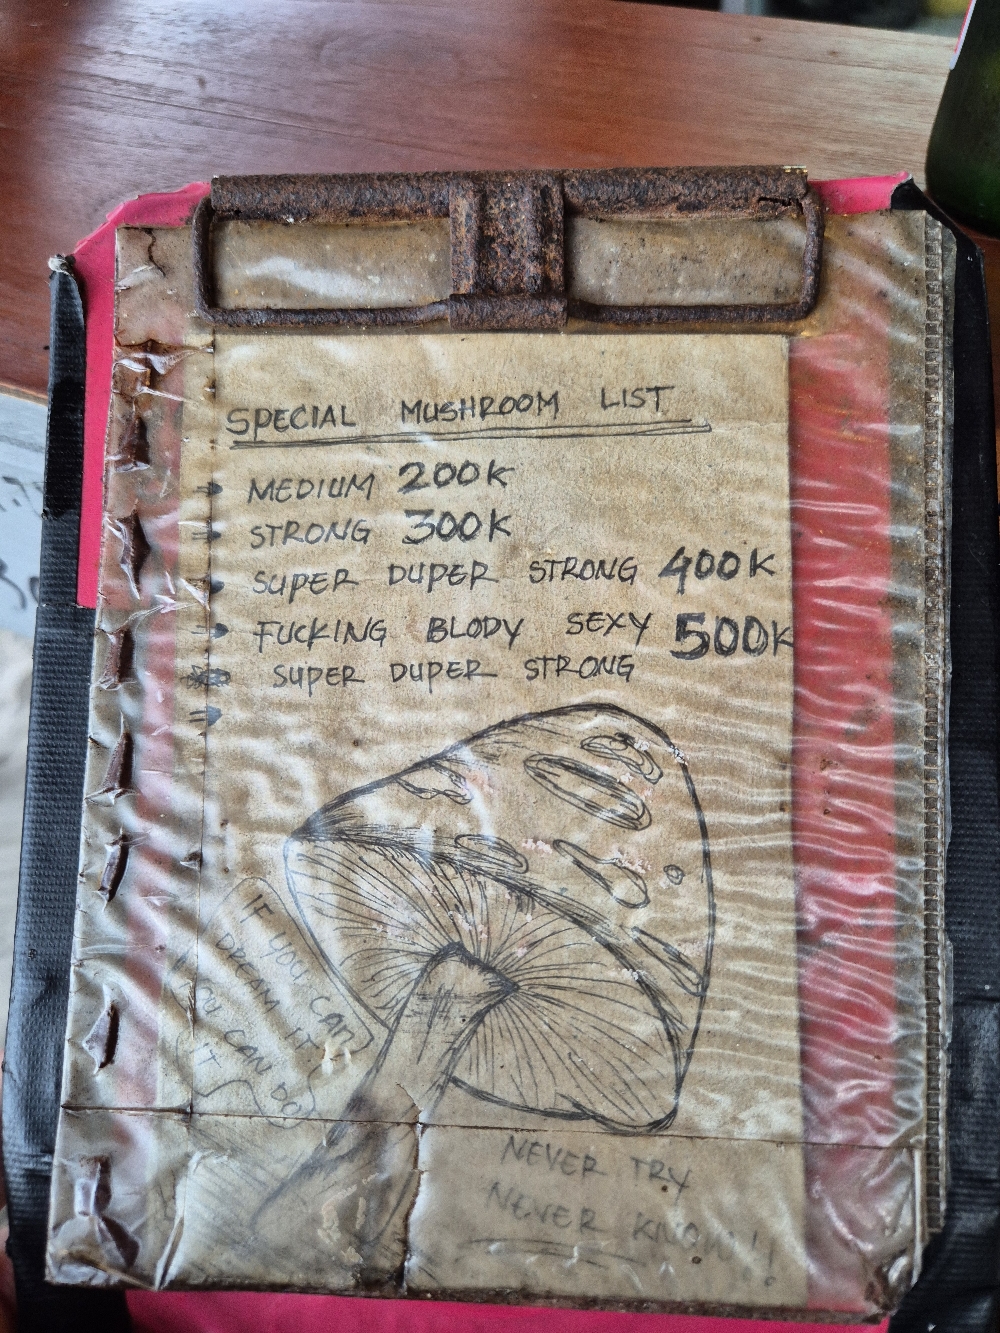 SPECIAL MUSHROOM LIST
MEDIUM 200K
STRONG 300K
SUPER DUPER STRONG 400K
FUCKING BLODY SEXY 500K
SUPER DUPER STRONG
IF YOU CAN
DREAM IT
YOU CAN DO
IT
NEVER TRY
NEVER KNOW!!